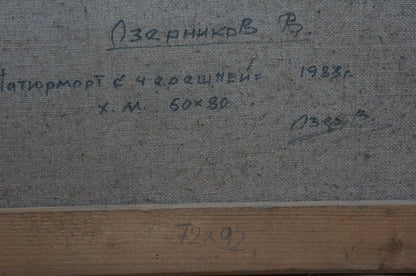 Лзерников В.
Натюрморт с черешней= 1983г.
х. м. 60×80
Лзер В.
72×92